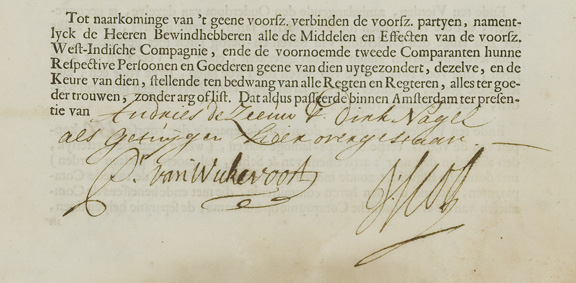 Tot naarkominge van 't geene voorsz. verbinden de voorsz. partyen, nament-
lyck de Heeren Bewindhebberen alle de Middelen en Effecten van de voorsz.
West-Indische Compagnie, ende de voornoemde tweede Comparanten hunne
Respective Persoonen en Goederen geene van dien uytgezondert, dezelve, en de
Keure van dien, stellende ten bedwang van alle Regten en Regteren, alles ter goe-
der trouwen, zonder arg of list. Dat aldus passeerde binnen Amsterdam ter presen-
tie van Andries de Leeuw & Dirk Nagel
als getuijgen hier over gestaan.